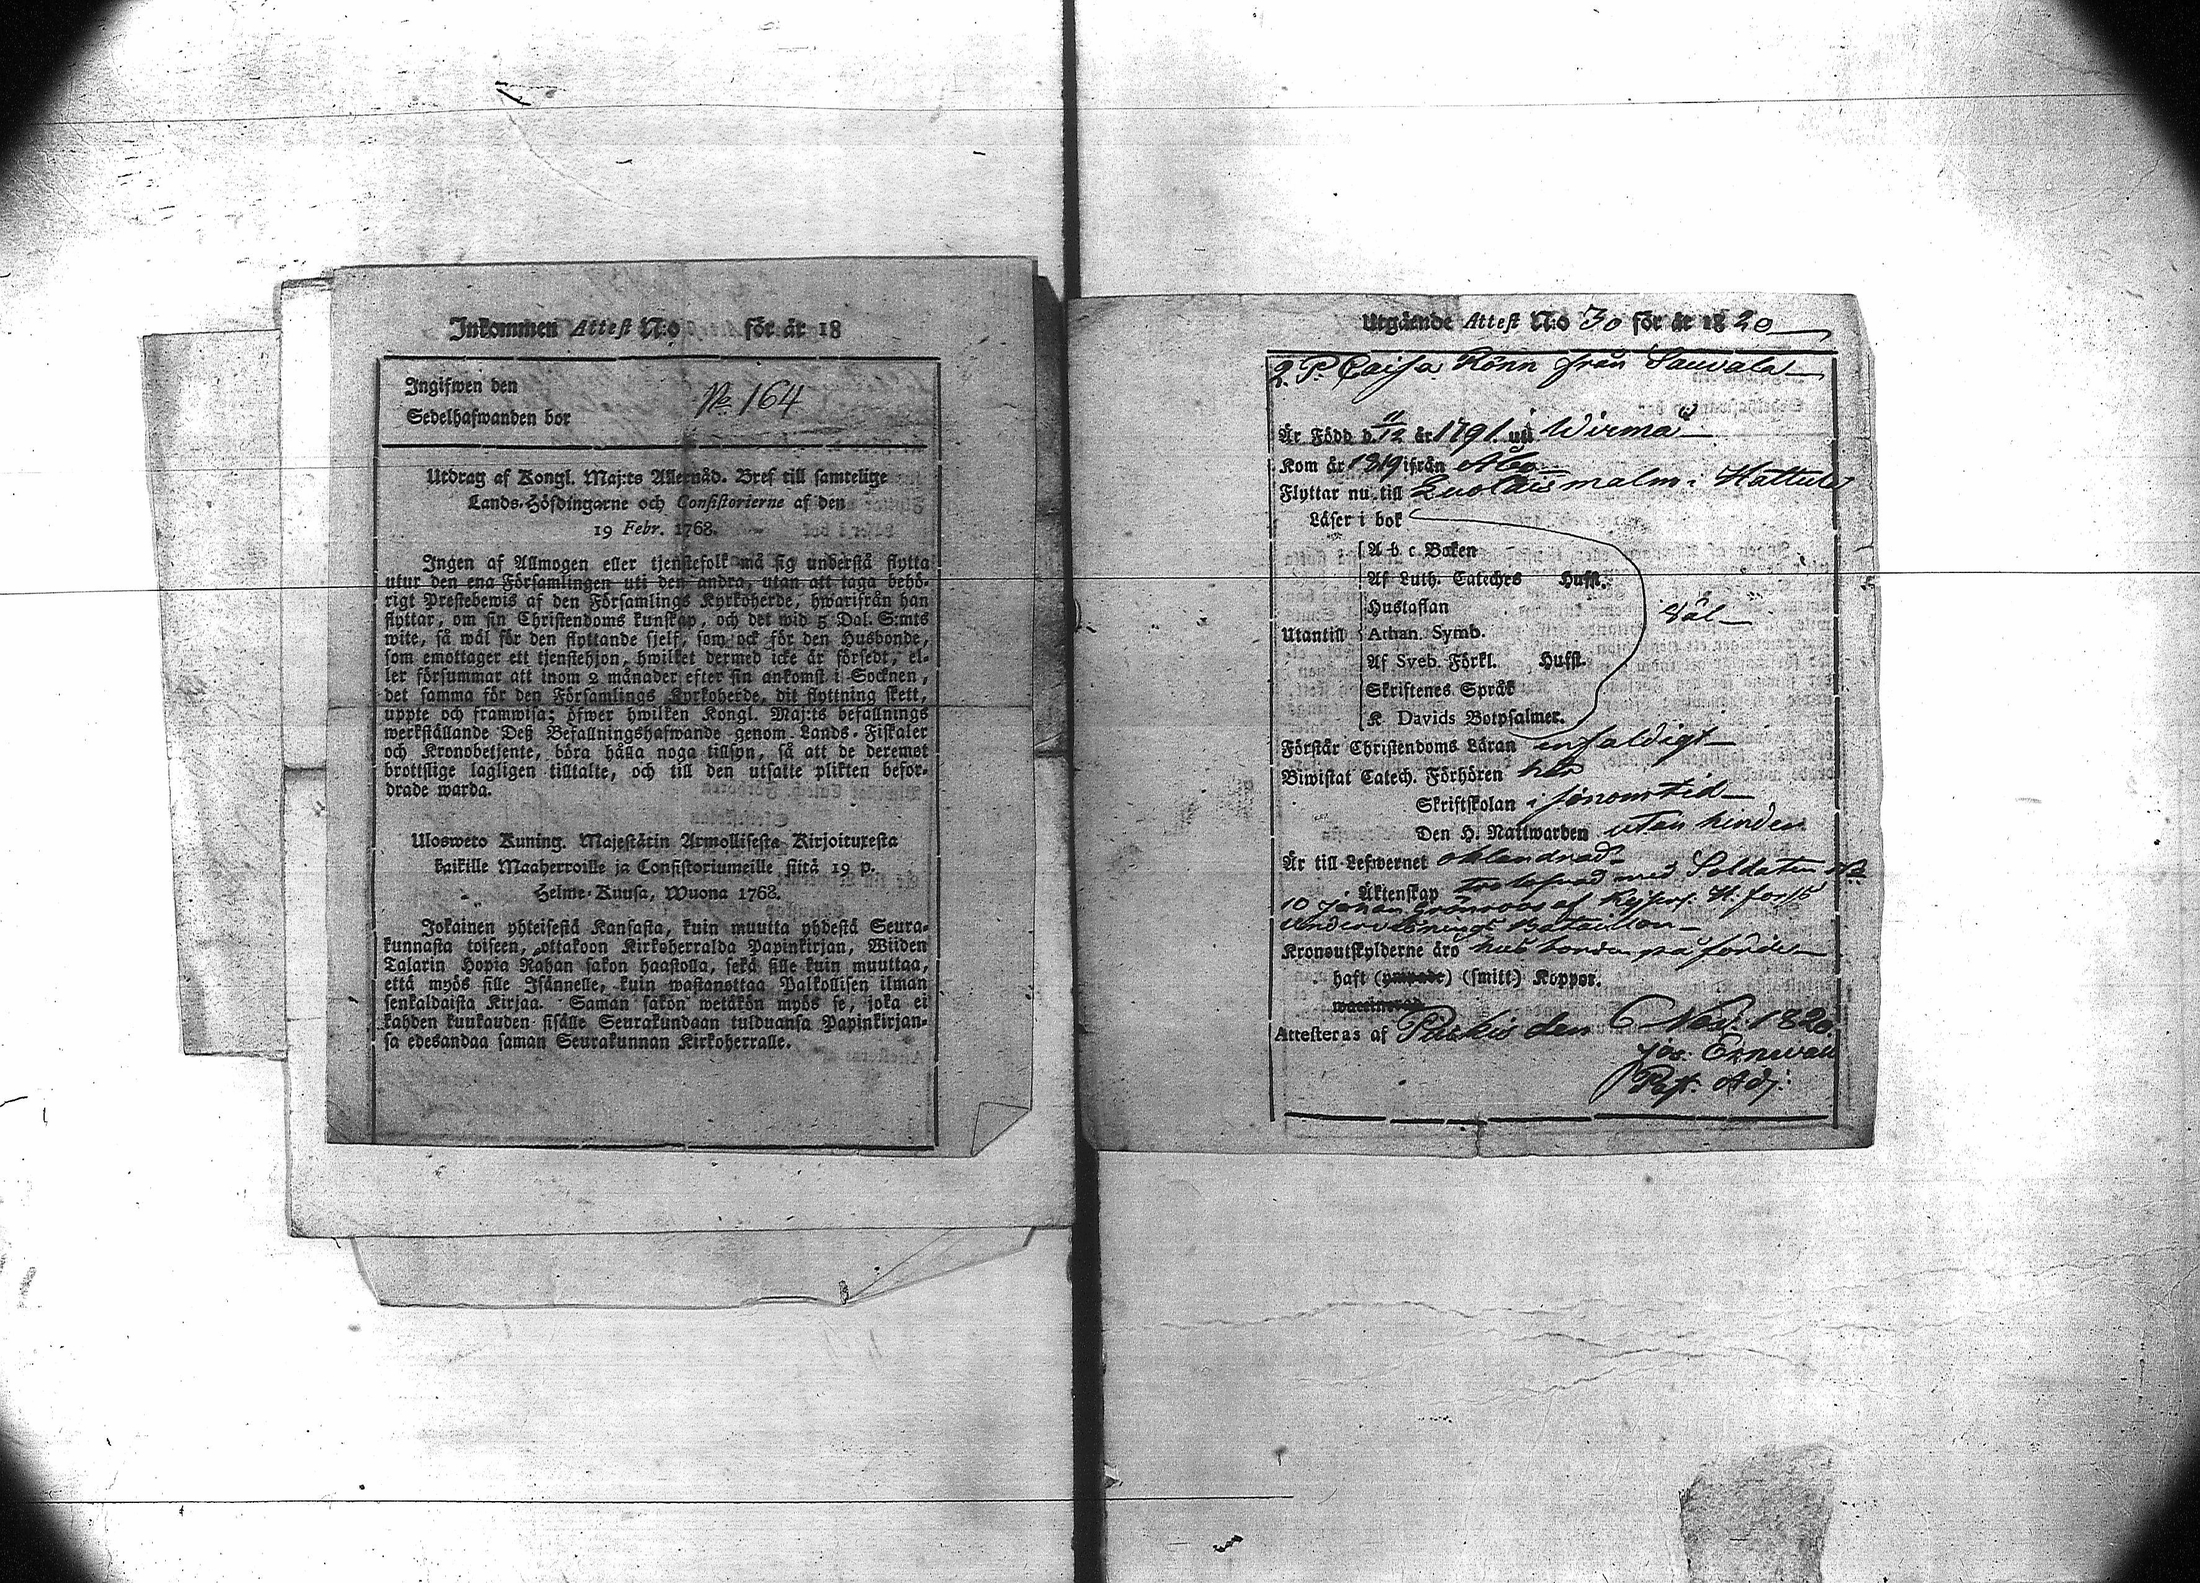 Inkommen Attest N:o för år 18
Ingifwen den
No 164
Sedelhafwanden bor
Utdrag af Kongl. Maj:ts Allernåd. Bref till samtelige
Lands-Höfdingarne och Consistorierne af den
19 Febr. 1768.
Ingen af Allmogen eller tjenstefolk må sig understå flytta
utur den ena Församlingen uti den andra, utan att taga behö-
rigt Prestebewis af den Församlings Kyrkoherde, hwarifrån han
flyttar, om sin Christendoms kunskap, och det wid 5 Dal. S:mts
wite, så wäl för den flyttande sjelf, som ock för den Husbonde,
som emottager ett tjenstehjon, hwilket dermed icke är försedt, el-
ler försummar att inom 2 månader efter sin ankomst i Socknen,
det samma för den Församlings Kyrkoherde, dit flyttning skett,
uppte och framwisa; öfwer hwilken Kongl. Maj:ts befallnings
werkställande Deß Befallningshafwande genom Lands-Fiskaler
och Kronobetjente, böra hålla noga tillsyn, så att de deremot
brottslige lagligen tilltalte, och till den utsatte plikten befor-
drade warda.
Ulosweto Kuning. Majestätin Armollisesta Kirjoituxesta
kaikille Maaherroille ja Consistoriumeille siitä 19 p.
Helme-Kuusa, Wuona 1768.
Jokainen yhteisestä Kansasta, kuin muutta yhdestä Seura-
kunnasta toiseen, ottakoon Kirkoherralda Papinkirjan, Wiiden
Talarin Hopia Rahan sakon haastolla, sekä sille kuin muuttaa,
että myös sille Isännelle, kuin wastanottaa Palkollisen ilman
senkaldaista Kirjaa. Saman sakon wetäkön myös se, joka ei
kahden kuukauden sisälle Seurakundaan tulduansa Papinkirjan-
sa edesandaa saman Seurakunnan Kirkoherralle.
Utgående Attest N:o 30 för år 1820
P. Caisa Rönn från Sauvala
Är Född d. 11/12 år 1791 uti Wirmo
Kom år 1819 ifrån Åbo
Flyttar nu till malm i Hattula
Läser i bok
A b c Boken
Af Luth. Cateches Hufst.
Hustaflan
Wäl
Utantill Athan. Symb.
Af Sveb. Förkl. Hufst.
Skriftenes Språk
K. Davids Botpsalmer.
Förstår Christendoms Läran enfaldigt
Biwistat Catech. Förhören här
Skriftskolan i sinom tid
Den H. Nattwarden utan hinder
Är till Lefwernet oklandrad
Äktenskap trolofwad med Soldaten No
10 Johan Grönroos af
Underwisnings Bataillon
Kronoutskylderne äro husbonden på förde
haft (ympade) (smitt) Koppor.
waccinerad
Attesteras af Pikis den 6 Nov. 1820
Past. Adj.